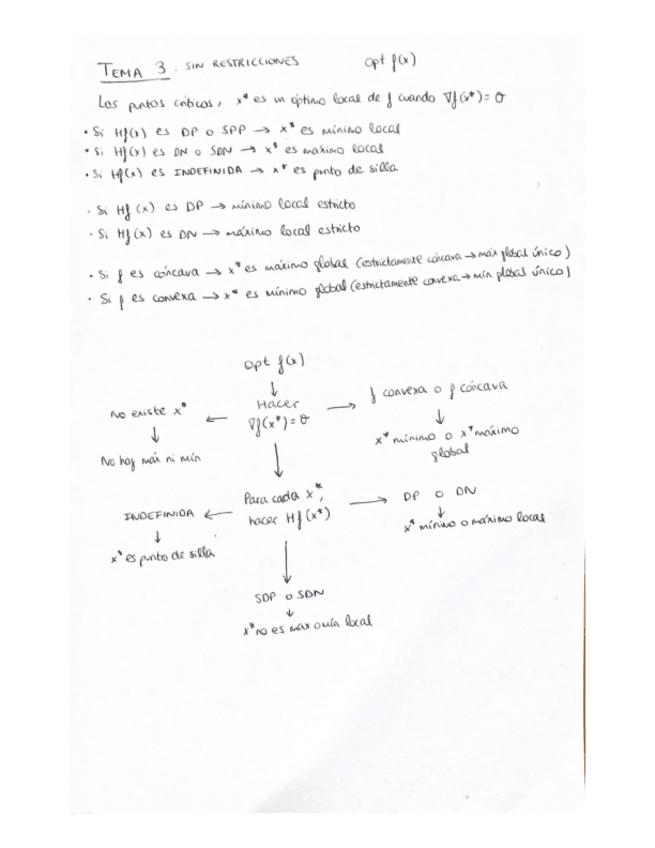 TEMA 3. SIN RESTRICCIONES opt f(x)
Los puntos críticos, x* es un óptimo local de f cuando ∇f(x*) = 0
• Si Hf(x) es DP o SPP → x* es mínimo local
• Si Hf(x) es DN o SDN → x* es máximo local
• Si Hf(x) es INDEFINIDA → x* es punto de silla
· Si Hf(x) es DP → mínimo local estricto
· Si Hf(x) es DN → máximo local estricto
• Si f es cóncava → x* es máximo global (estrictamente cóncava → máx global único)
• Si f es convexa → x* es mínimo global (estrictamente convexa → mín global único)
opt f(x)
↓
No existe x* ← Hacer ∇f(x*) = 0 → f convexa o f cóncava
↓
No hay máx ni mín
↓
x* mínimo o x* máximo
global
↓
Para cada x*,
hacer Hf(x*)
→ DP o DN
↓
x* mínimo o máximo local
INDEFINIDA ←
↓
x* es punto de silla
↓
SDP o SDN
↓
x* no es max o local